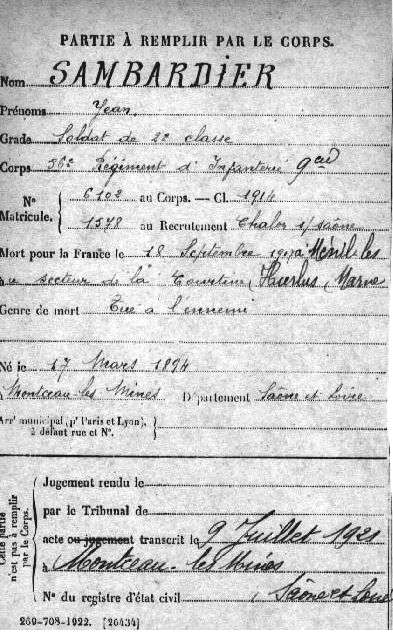 PARTIE À REMPLIR PAR LE CORPS.
Nom SAMBARDIER
Prénoms Jean
Grade Soldat de 2e classe
Corps 56e Régiment d'Infanterie 9 cie
N° Matricule. 6102 au Corps. — Cl. 1914
1578 au Recrutement Chalon s/ Saône
Mort pour la France le 18 Septembre 1917 à Ménil les
au secteur de la Courtine, Hurlus, Marne
Genre de mort Tué à l'ennemi
Né le 17 Mars 1894
Montceau-les-Mines Département Saône et Loire
Arr' municipal (p' Paris et Lyon),
à défaut rue et N°.
Cette partie n'est pas à remplir par le Corps.
Jugement rendu le
par le Tribunal de
acte ou jugement transcrit le 9 Juillet 1921
à Montceau-les-Mines
N° du registre d'état civil (Saône et Loire
269-708-1922. [26434]